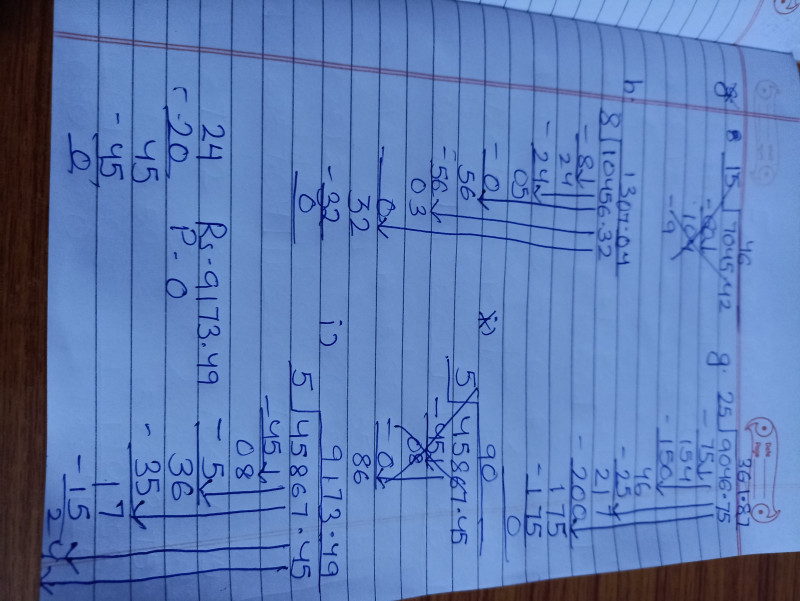 46
15 7045.42
104
- 9
g. 361.87
25 9046.75
- 75
154
- 150
46
- 25
217
- 200
175
- 175
0
h. 1307.04
8 10456.32
- 8
24
- 24
05
- 0
56
- 56
03
- 0
32
- 32
0
90
5 45867.45
- 45
08
- 0
86
i) 9173.49
5 45867.45
- 45
08
- 5
36
- 35
17
- 15
24
24
- 20
45
- 45
0
Rs - 9173.49
P - 0